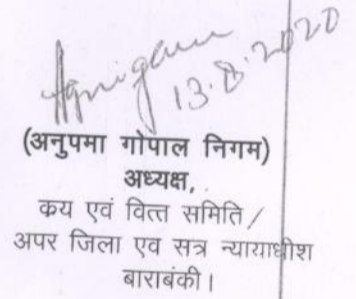 Agnigam
13.8.2020
(अनुपमा गोपाल निगम)
अध्यक्ष,
कय एवं वित्त समिति /
अपर जिला एव सत्र न्यायाधीश
बाराबंकी।